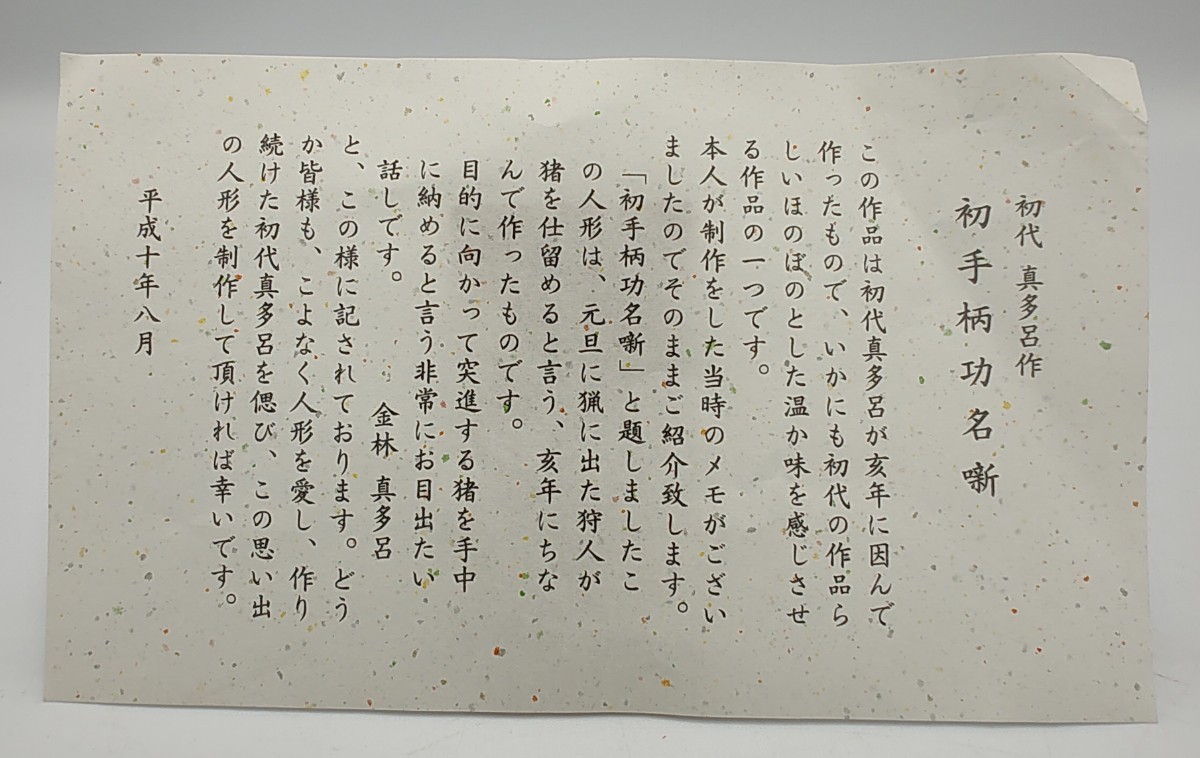 初代 真多呂作
初手柄功名噺
この作品は初代真多呂が亥年に因んで
作ったもので、いかにも初代の作品ら
しいほのぼのとした温か味を感じさせ
る作品の一つです。
本人が制作をした当時のメモがござい
ましたのでそのままご紹介致します。
「初手柄功名噺」と題しましたこ
の人形は、元旦に猟に出た狩人が
猪を仕留めると言う、亥年にちな
んで作ったものです。
目的に向かって突進する猪を手中
に納めると言う非常にお目出たい
話しです。
金林 真多呂
と、この様に記されております。どう
か皆様も、こよなく人形を愛し、作り
続けた初代真多呂を偲び、この思い出
の人形を制作して頂ければ幸いです。
平成十年八月